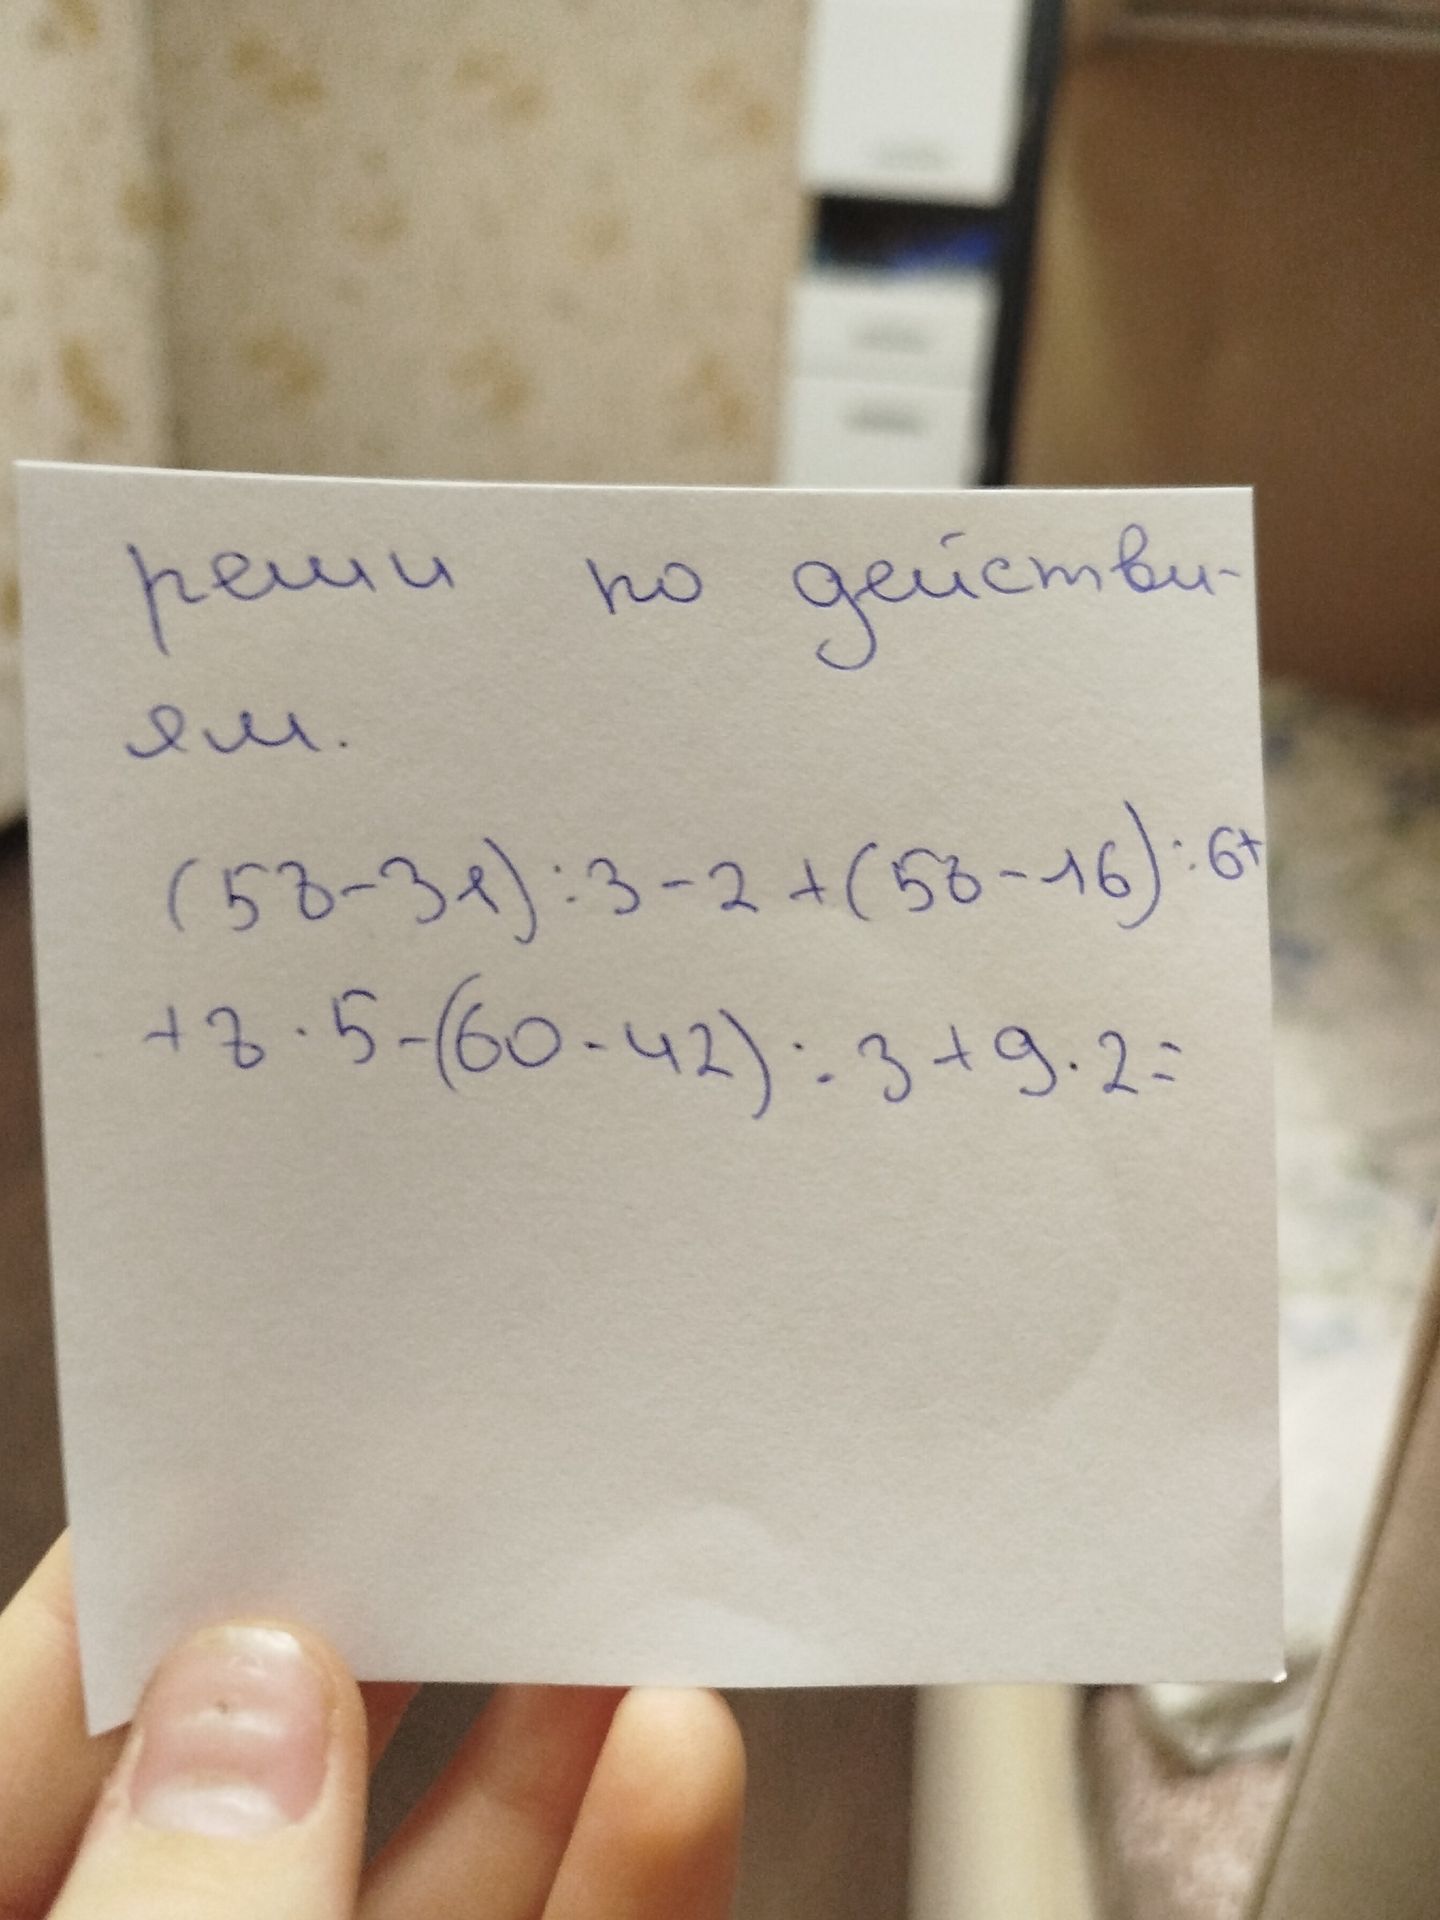 реши по действи-
ям.
(58-31):3-2+(58-16):6+
+8·5-(60-42):3+9·2=